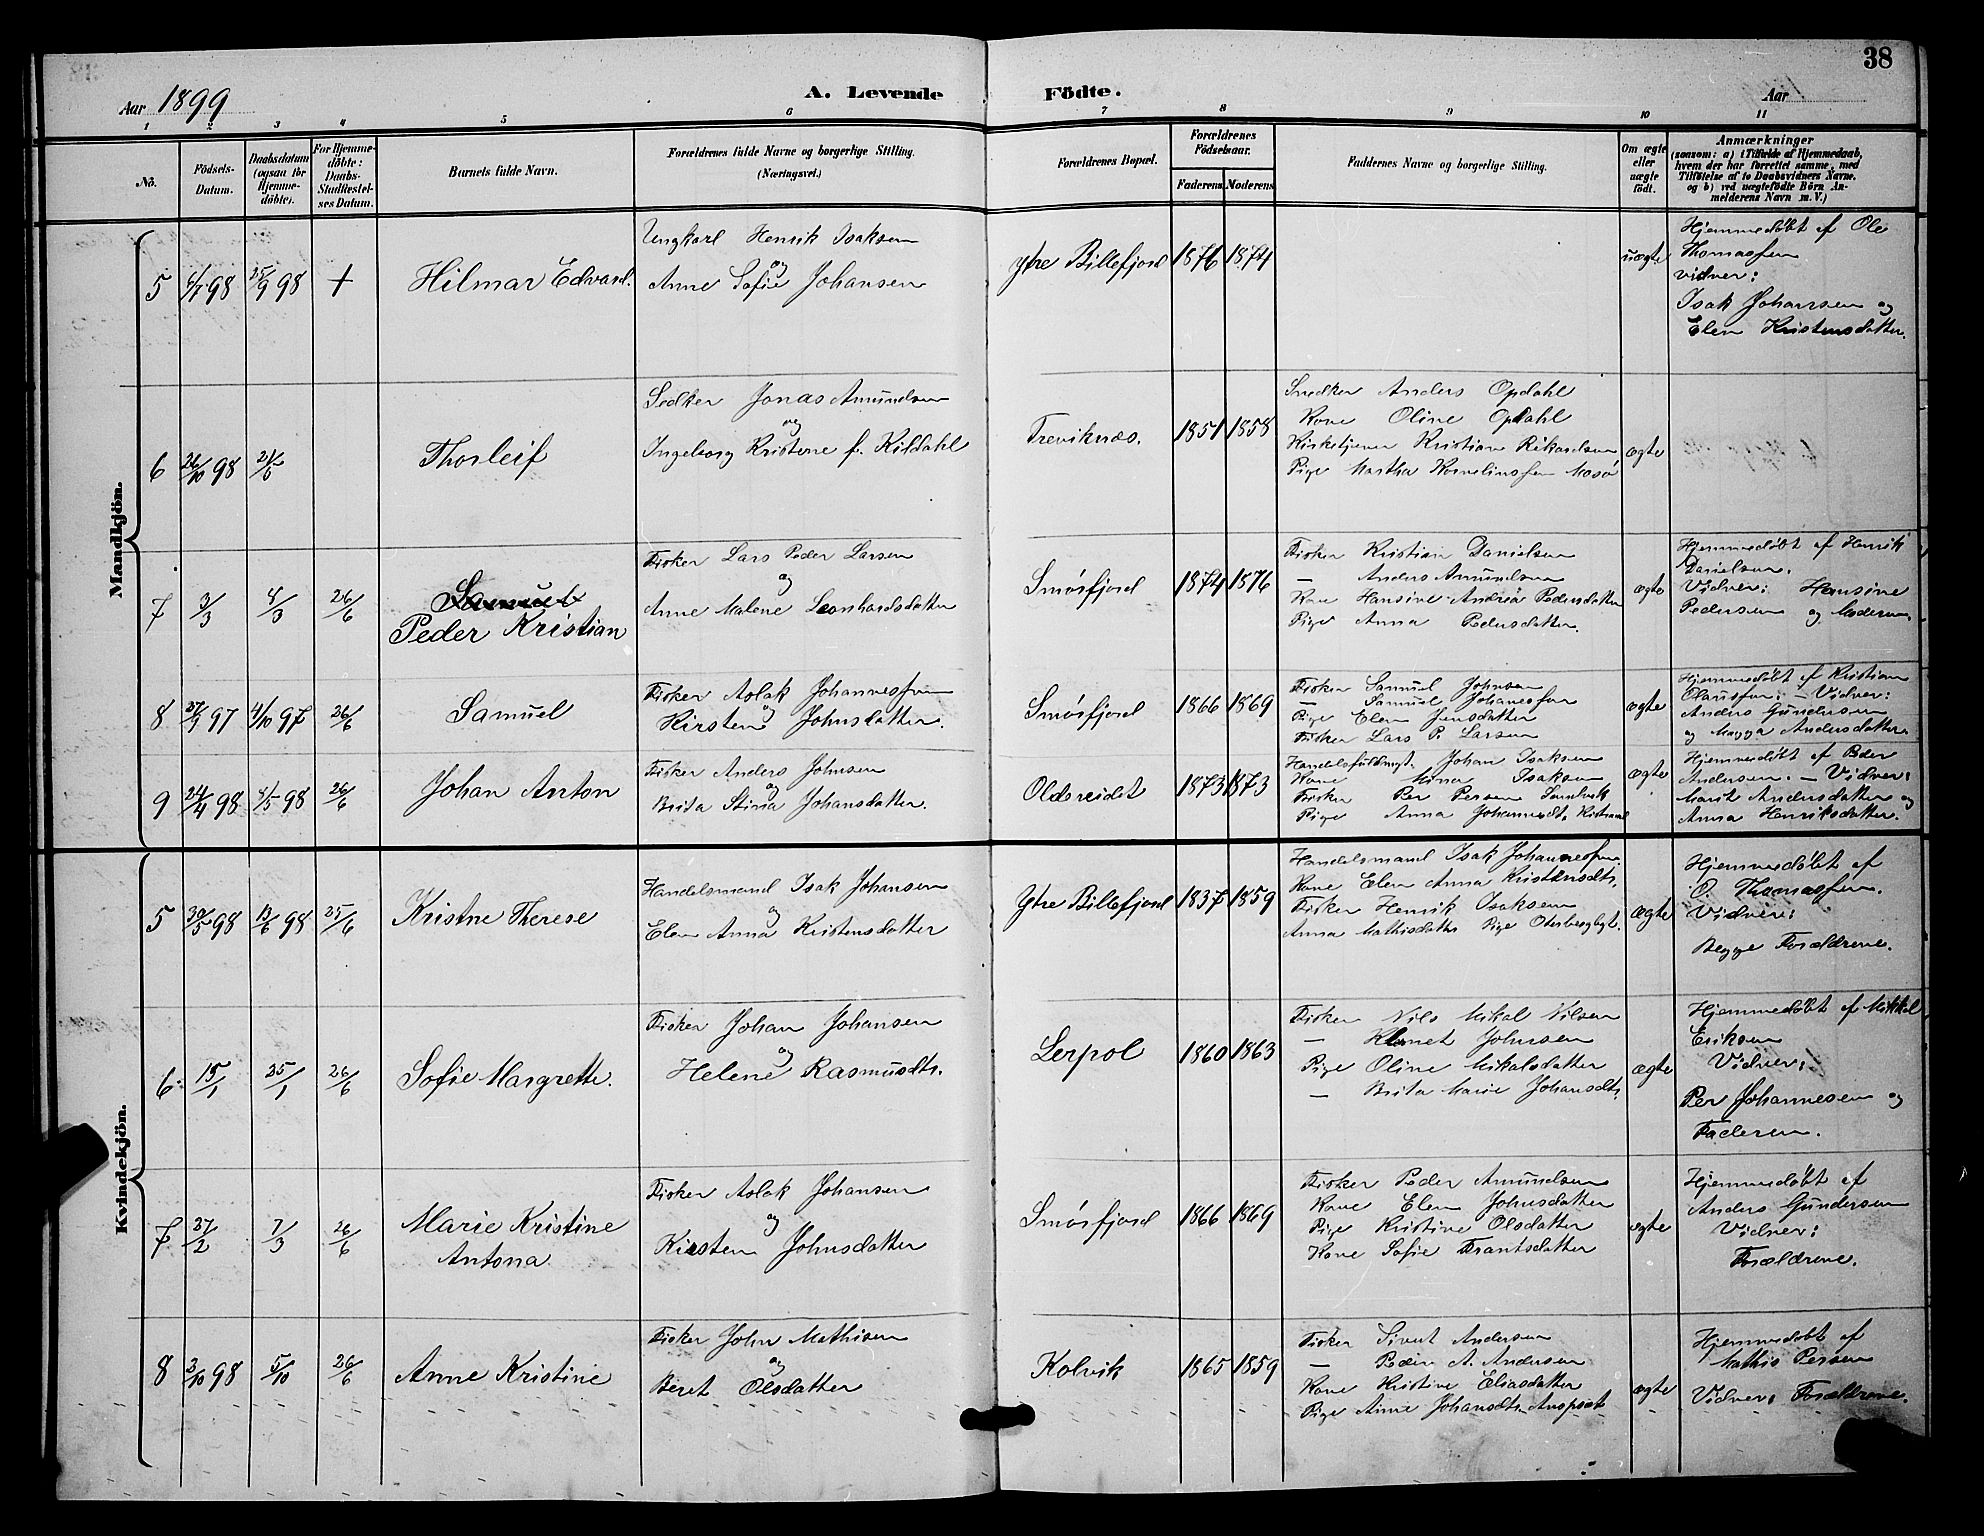 38
Aar 1899
A. Levende
Födte.
Aar
1 2 3 4 5 6 7 8 9 10 11
No.
Födsels-Datum.
Daabsdatum (ogsaa for Hjemme-döbte).
For Hjemme-döbte: Daabs-Stadfæstel-ses Datum.
Barnets fulde Navn.
Forældrenes fulde Navne og borgerlige Stilling.
(Næringsvei.)
Forældrenes Bopæl.
Forældrenes Födselsaar.
Faderens. Moderens.
Faddernes Navne og borgerlige Stilling.
Om ægte eller uægte födt.
Anmærkninger
(saasom: a) i Tilfælde af Hjemmedaab,
hvem der har forrettet samme, med
Tilföielse af to Daabsvidners Navne,
og b) ved uægtefödte Börn An-
melderens Navn m. V.)
Mandkjön.
5 98 25/9 98 +
Hilmar Edvard.
Ungkarl Henrik Isaksen
og
Anne Sofie Johansen
Ytre Billefjord 1876 1874
uægte
Hjemmedøbt af Ole
Thomassen
vidner:
Isak Johansen og
Elen Kristensdatter.
6 26/10 98
Thorleif
Jonas Amundsen
og
Ingeborg Kristene f. Kildahl
Treviknæs. 1851 1858
Snedker Anders Opdahl
Kone Oline Opdahl
Kirketjener Kristian Rikardsen
Pige Martha Kornelinssen Masø
ægte
7 3/3 4/3 26/6
Samuel
Peder Kristian
Fisker Lars Peder Larsen
og
Anne Malene Leonhardsdatter
Smørfjord 1874 1876
Fisker Kristian Danielsen
— Anders Amundsen
Kone Hansine Andrea Pedersdatter
Pige Anna Pedersdatter.
ægte
Hjemmedøbt af Henrik
Danielsen.
Vidner: Hansine
Pedersen og Moderen.
8 27/9 97 4/10 97 26/6
Samuel
Fisker Aslak Johannessen
og
Kirsten Johnsdatter.
Smørfjord 1866 1869
Fisker Samuel Johnsen
— Samuel Johanessen
Pige Elen Jensdatter
Fisker Lars P. Larsen
ægte
Hjemmedøbt af Kristian
Olaussen: — Vidner:
Anders Gundersen
og Magga Andersdatter.
9 24/4 98 /5 98 26/6
Johan Anton
Fisker Anders Johnsen
og
Brita Stina Johansdatter.
Oldereidet 1873 1873
Handelsfuldmgt. Johan Isaksen
Kone Mina Isaksen
Fisker Per Persen Sandvik
Pige Anna Johannesdt.
ægte
Hjemmedøbt af Peder
Andersen. — Vidner:
Marit Andersdatter og
Anna Henriksdatter.
Kvindekjön.
5 30/5 98 13/6 98 25/6
Kristne Therese
Handelsmand Isak Johansen
og
Elen Anna Kristensdatter
Ytre Billefjord 1837 1859
Handelsmand Isak Johannessen.
Kone Elen Anna Kristensdtr.
Fisker Henrik Isaksen
Anna Mathisdatter Pige
ægte
Hjemmedøbt af
O. Thomassen.
Vidner:
Begge Forældrene.
6: 15/1 25/1 26/6
Sofie Margrethe.
Fisker Johan Johansen
og
Helene Rasmusdtr.
Lerpol 1860 1863
Fisker Nils Mikal Nilsen
— Klemet Johnsen
Pige Oline Mikalsdatter
— Brita Marie Johansdtr.
ægte
Hjemmedøbt af Mikkel
Eriksen
Vidner:
Per Johannesen og
Faderen.
7 27/2 7/3 26/6
Marie Kristine
Antona
Fisker Aslak Johansen
og
Kirsten Johnsdatter
Smørfjord 1866 1869
Fisker Peder Amundsen
Kone Elen Johnsdatter
Pige Kristine Olsdatter
Kone Sofie Frantsdatter
ægte
Hjemmedøbt af
Anders Gundersen
Vidner:
Forældrene.
8 3/10 98 5/10 26/6
Anne Kristine
Fisker John Mathisen
og
Beret Olsdatter
Kolvik 1865 1859
Fisker Sivert Andersen
— Peder A. Andersen
Kone Kristine Eliasdatter
Pige Anne Johansdtr.
ægte
Hjemmedøbt af
Mathis Persen
Vidner: Forældrene.